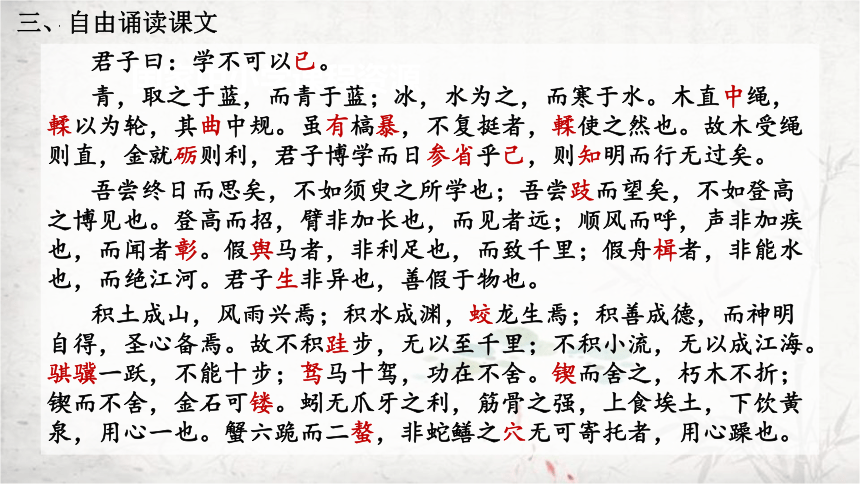 三、自由诵读课文
君子曰：学不可以已。
青，取之于蓝，而青于蓝；冰，水为之，而寒于水。木直中绳，
輮以为轮，其曲中规。虽有槁暴，不复挺者，輮使之然也。故木受绳
则直，金就砺则利，君子博学而日参省乎己，则知明而行无过矣。
吾尝终日而思矣，不如须臾之所学也；吾尝跂而望矣，不如登高
之博见也。登高而招，臂非加长也，而见者远；顺风而呼，声非加疾
也，而闻者彰。假舆马者，非利足也，而致千里；假舟楫者，非能水
也，而绝江河。君子生非异也，善假于物也。
积土成山，风雨兴焉；积水成渊，蛟龙生焉；积善成德，而神明
自得，圣心备焉。故不积跬步，无以至千里；不积小流，无以成江海。
骐骥一跃，不能十步；驽马十驾，功在不舍。锲而舍之，朽木不折；
锲而不舍，金石可镂。蚓无爪牙之利，筋骨之强，上食埃土，下饮黄
泉，用心一也。蟹六跪而二螯，非蛇鳝之穴无可寄托者，用心躁也。